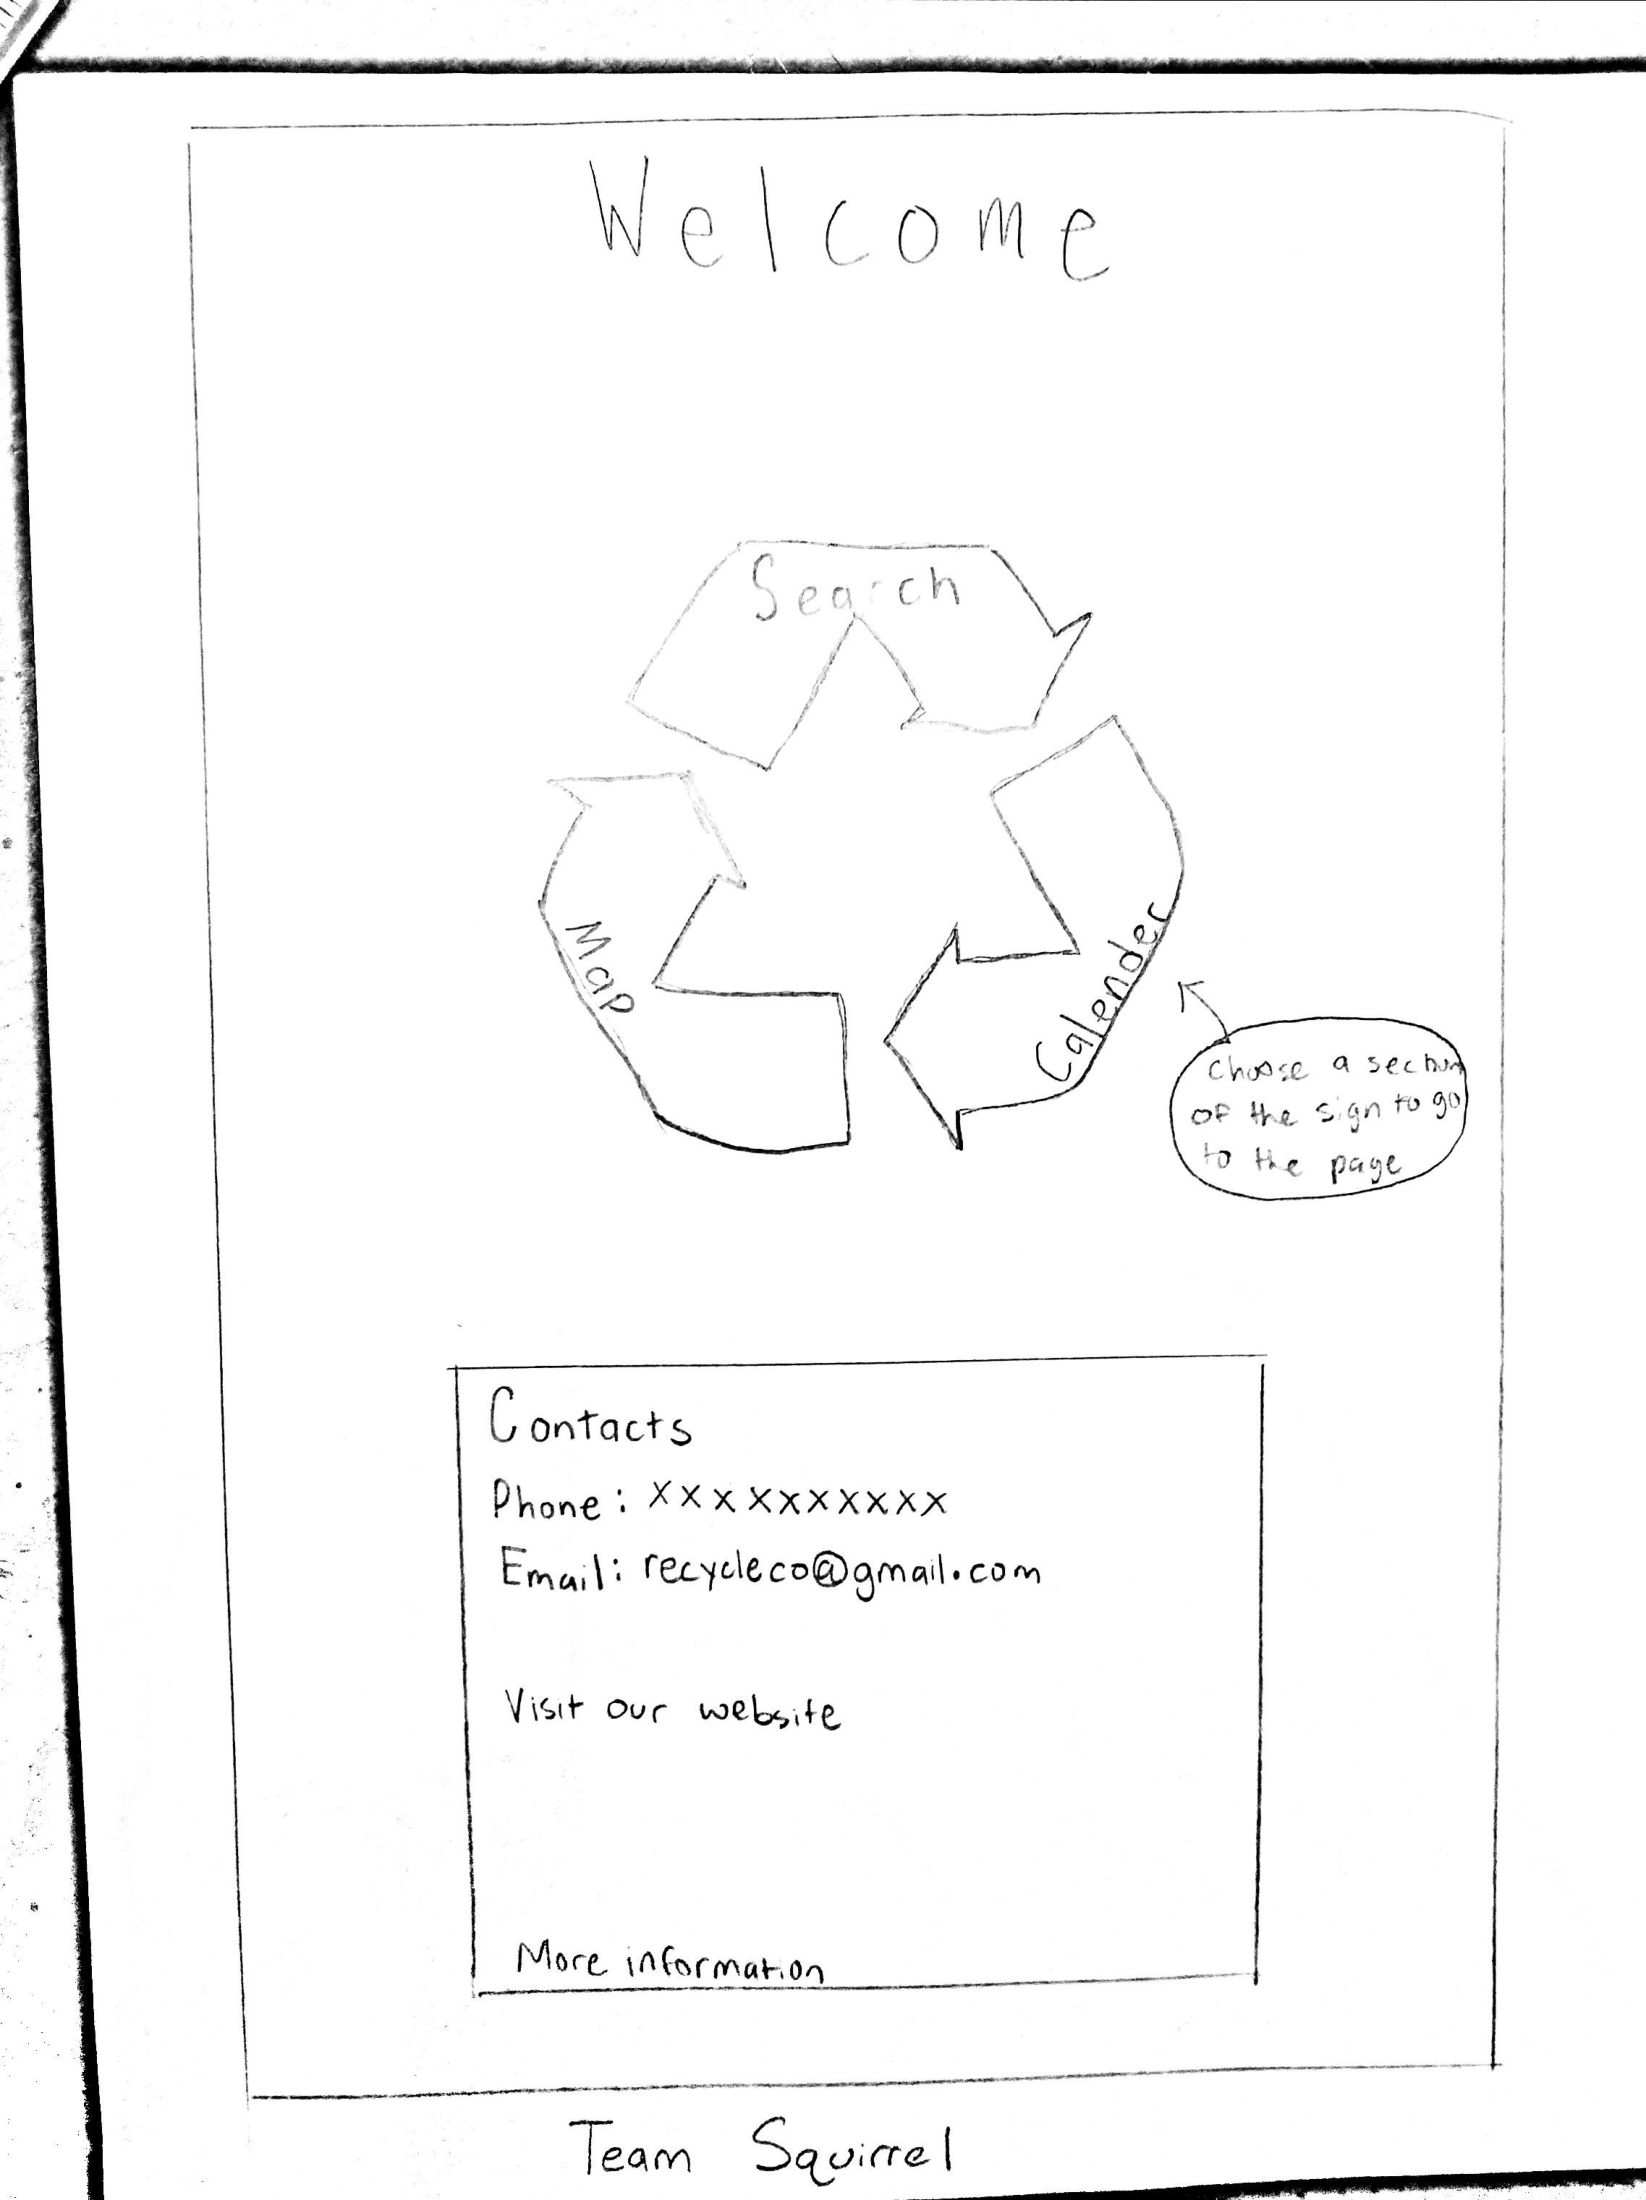 Welcome
Search
Map
Calender
Choose a section
of the sign to go
to the page
Contacts
Phone: xxxxxxxxxx
Email: recycleco@gmail.com
Visit our website
More information
Team Squirrel